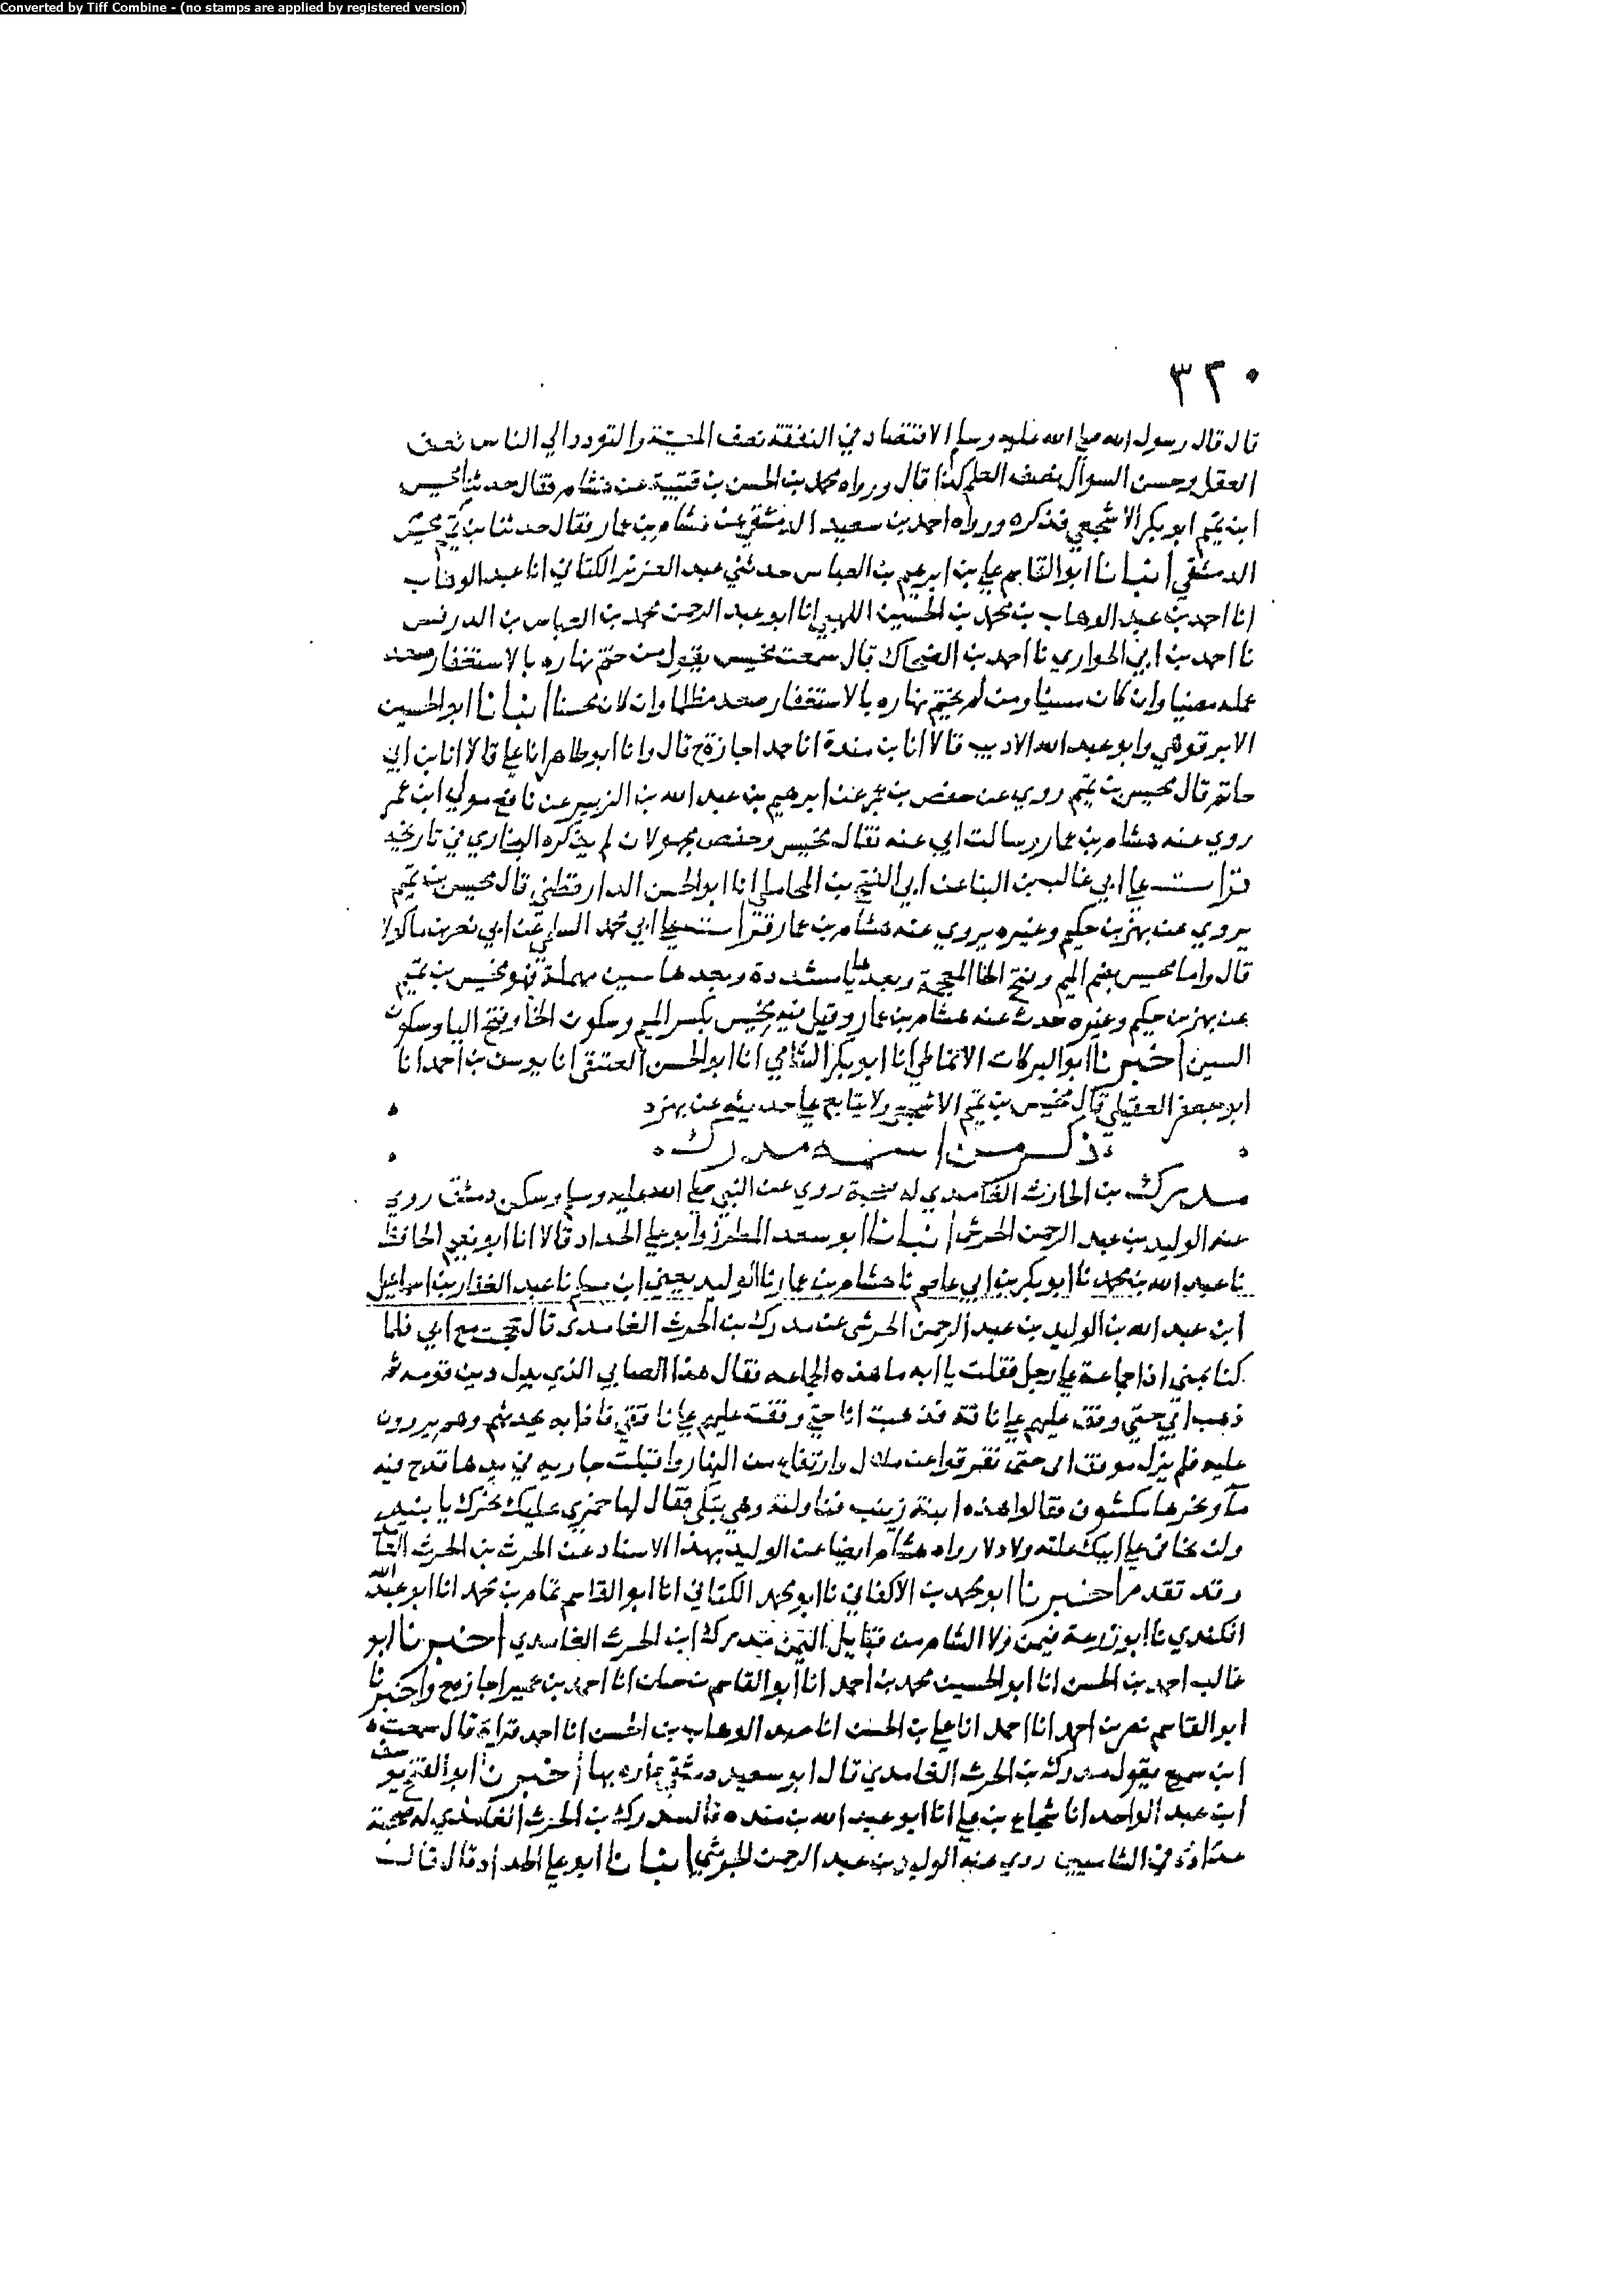 Converted by Tiff Combine - (no stamps are applied by registered version)
٣٢٠
قال قال رسول الله صلي الله عليه وسلم الاقتصاد في النفقة نصف المعيشة والتودد الي الناس نصف
العقل وحسن السوال نصف العلم كذا قال ورواه محمد بن الحسن بن قتيبة عن هشام فقال حدثنا مخيس
ابن تميم ابو بكر الاشجعي فذكره ورواه احمد بن سعيد الدمشقي عن هشام بن عمار فقال حدثنا بن تميم مخيس
الدمشقي انبانا ابو القاسم علي بن ابرهيم بن العباس حدثني عبد العزيز الكتاني انا عبد الوهاب
انا احمد بن عبد الوهاب بن محمد بن الحسين اللهبي انا ابو عبد الرحمن محمد بن العباس بن الدرفس
نا احمد بن ابي الحواري نا احمد بن الضحاك قال سمعت مخيس يقول من ختم نهاره بالاستغفار صعد
عمله مضيا وان كان مسيا ومن لم يختم نهاره بالاستغفار صعد مظلما وان كان محسنا انبانا ابو الحسين
الابرقوهي وابو عبد الله الاديب قالا انا بن مندة انا حمد اجازة ح قال وانا ابو طاهر انا علي قالا انا بن ابي
حاتم قال مخيس بن تميم روي عن حفص بن عمر عن ابرهيم بن عبد الله بن الزبير عن نافع مولي ابن عمر
روي عنه هشام بن عمار سالت ابي عنه فقال مخيس وحفص مجهولان لم يذكره البخاري في تاريخه
قرات علي ابي غالب بن البنا عن ابي الفتح بن المحاملي انا ابو الحسن الدارقطني قال مخيس بن تميم
يروي عن بهز بن حكيم وغيره يروي عنه هشام بن عمار قرات علي ابي محمد السلمي عن ابي نصر بن ماكولا
قال واما مخيس بضم الميم وفتح الخا المعجمة وبعدها يا مشددة وبعدها سين مهملة فهو مخيس بن تميم
عن بهز بن حكيم وغيره حدث عنه هشام بن عمار وقيل فيه مخيس بكسر الميم وسكون الخا وفتح اليا وسكون
السين اخبرنا ابو البركات الانماطي انا ابو بكر الشامي انا ابو الحسن العتيقي انا يوسف بن احمد انا
ابو جعفر العقيلي قال مخيس بن تميم الاشجعي ولا يتابع علي حديثه عن بهز
ذكر من اسمه مدرك
مدرك بن الحارث الغامدي له صحبة روي عن النبي صلي الله عليه وسلم وسكن دمشق روي
عنه الوليد بن عبد الرحمن الجرشي انبانا ابو سعد المطرز وابو علي الحداد قالا انا ابو نعيم الحافظ
نا عبد الله بن محمد نا ابو بكر بن ابي عاصم نا هشام بن عمار نا الوليد يعني ابن مسلم نا عبد الغفار بن اسماعيل
ابن عبد الله بن الوليد بن عبد الرحمن الجرشي عن مدرك بن الحرث الغامدي قال حججت مع ابي فلما
كنا بمني اذا جماعة علي رجل فقلت يا ابه ما هذه الجماعه فقال هذا الصابي الذي بدل دين قومه ثم
ذهب ابي حتي وقف عليهم علي ناقته فذهبت انا حتي وقفت عليهم علي ناقتي فاذا به يحدثهم وهم يردون
عليه فلم يزل موقف ابي حتى تفرقوا عن ملال وارتفاع من النهار واقبلت جاريه في يدها قدح فيه
ماء ونحرها مكشوف فقالوا هذه ابنته زينب فناولته وهي تبكي فقال لها خمري عليك نحرك يا بنيه
ولن تخافي علي ابيك غلبه ولا ذلا رواه هشام ايضا عن الوليد بهذا الاسناد عن الحرث بن الحرث
وقد تقدم اخبرنا ابو محمد بن الاكفاني نا ابو محمد الكتاني انا ابو القاسم تمام بن محمد انا ابو عبد الله
الكندي نا ابو زرعة فيمن نزل الشام من قبايل اليمن مدرك ابن الحرث الغامدي اخبرنا ابو
غالب احمد بن الحسن انا ابو الحسين محمد بن احمد انا ابو القاسم بن عتاب انا احمد بن عمير اجازة ح واخبرنا
ابو القاسم نصر بن احمد انا احمد انا علي بن الحسن انا عبد الوهاب بن الحسن انا احمد قراة قال سمعت
ابن سميع يقول مدرك بن الحرث الغامدي قال ابو سعيد دمشقي داره بها اخبرنا ابو الفتح يوسف
ابن عبد الواحد انا شجاع بن علي انا ابو عبد الله بن منده قال مدرك بن الحرث الغامدي له صحبة
عداده في الشاميين روي عنه الوليد بن عبد الرحمن الجرشي انبانا ابو علي الحداد قال قال